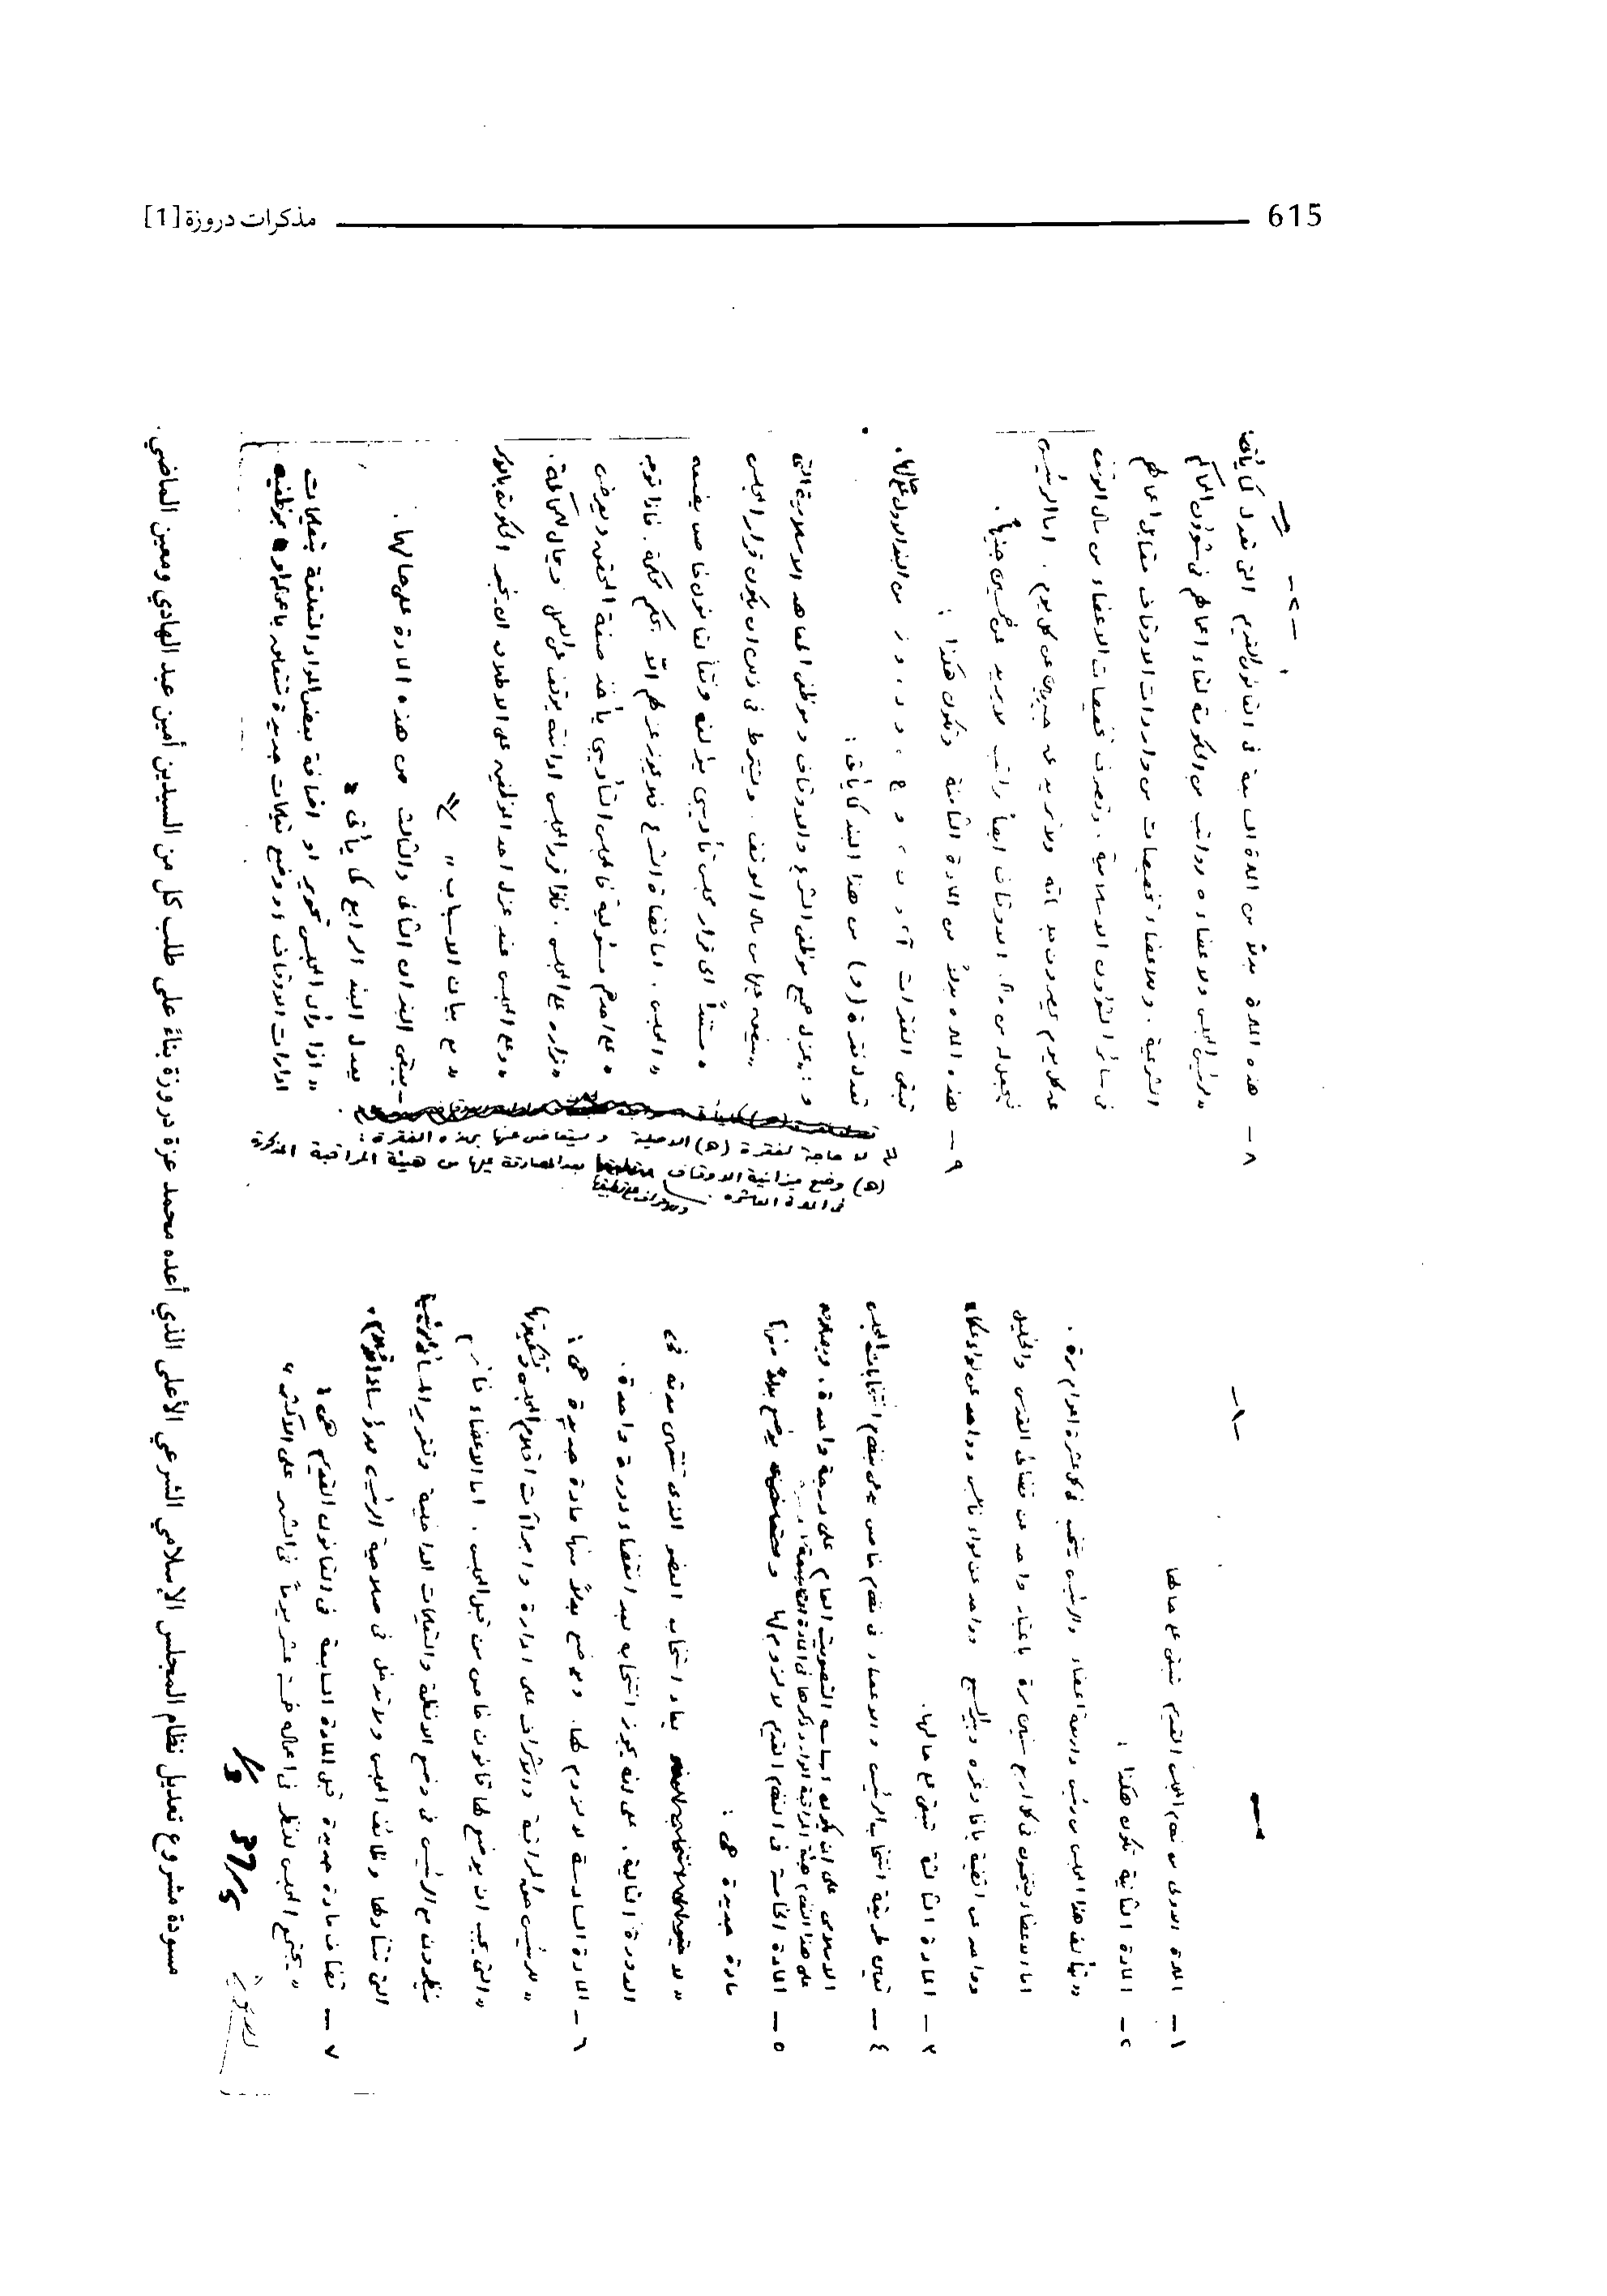 615
مذكرات دروزة [1]
-١-
١- المادة الاولى من نظام المجلس القديم تبقى على حالها
٢- المادة الثانية تكون هكذا :
«يتألف هذا المجلس من رئيس واربعة اعضاء والرئيس ينتخب في كل عشرة اعوام مرة .
اما الاعضاء فينتخبون في كل اربع سنين مرة باعتبار واحد عن قضائى القدس والخليل
وواحد عن اقضية يافا وغزه وبئر السبع وواحد عن لواء نابلس وواحد عن لواء عكاء
٣- المادة الثالثة تبقى على حالها.
٤- تعين طريقة انتخاب الرئيس والاعضاء في نظام خاص يدعى بنظام انتخابات المجلس
الاسلامى على ان يكون اساسه التصويت العام على درجة واحدة.
على هذا النظام هيئة المراقبة الوارد ذكرها في المادة
٥- المادة الخامسة في النظام القديم لا لزوم لها ويوضع بدلاً منها
مادة جديدة هى :
« لا يعاد انتخاب العضو الذى تنتهى مدته في
الدورة التالية. على انه يجوز انتخابه بعد انقضاء دورة واحدة.
٦- المادة السادسة لا لزوم لها. ويوضع بدلاً منها مادة جديدة هى :
« للرئيس حق المراقبة والاشراف على ادارة واجراآت اقلام المجلس
« التى يجب ان يوضع لها قانون خاص من قبل المجلس . اما الاعضاء
ينظرون مع الرئيس في وضع الانظمة والتعليمات الداخلية وتقرير المسائل
التى تتناولها وظائف المجلس ولا تدخل في صلاحية الرئيس
٧- تضاف مادة جديدة قبل المادة السابعة في القانون القديم هى :
« يجتمع المجلس للنظر في اعماله خمسة عشر يوماً في الشهر على الاكثر »
-٢-
٨- هذه المادة بدلاً من المادة السابعة في القانون القديم التى تعدل كما يأتى:
« لرئيس المجلس ولاعضاءه رواتب من الحكومة لقاء اعمالهم في شؤون المحاكم
الشرعية . وللاعضاء تخصيصات من واردات الاوقاف مقابل اعمالهم
في سائر الشؤون الاسلامية . وتصرف تخصيصات الاعضاء من مال الوقف
عن كل يوم يحضرون جلساته ولا تزيد عن جنيهين عن كل يوم . اما الرئيس
فيجعل له من مال الاوقاف ايضاً راتب لا يزيد عن خمسين جنيهاً .
٩- هذه المادة بدلاً من المادة الثامنة وتكون هكذا :
تبقى الفقرات آ ، ب ، ج ، د ، و ز من البند الاول على حالها.
تعدل فقرة (و) من هذا البند كما يأتى :
و : « عزل جميع موظفى الشرع والاوقاف وموظفى المعاهد الاسلامية التى
« ينفق عليها من مال الوقف . ويشترط في ذلك ان يكون قرار المجلس
« مستنداً الى قرار مجلس تأديبى يؤلف وفقاً لقانون خاص يضعه
« المجلس . اما قضاة الشرع فلا يجوز عزلهم الا بحكم محكمة . فاذا توجه
« على احدهم مسئولية فالمجلس التأديبى يأخذ صفة المحقق ويعرض
« قراره على المجلس . فاذا قرر المجلس ادانته يوقف عن العمل ويحال للمحاكمة .
« وعلى المجلس عند عزل احد الموظفين على الاطلاق ان يخبر الحكومة بالامر
« مع بيان الاسباب »
- يبقى البندان الثانى والثالث من هذه المادة على حالها .
يعدل البند الرابع كما يأتى :
« اذا رأى المجلس تحوير او اضافة بعض المواد المتعلقة بتعليمات
ادارات الاوقاف او وضع تعليمات جديدة تتعلق باعمال موظفيه
لا حاجة لفقرة (ه) الاصلية ويستعاض عنها بهذه الفقرة :
(ه) وضع ميزانية الاوقاف بعد المصادقة عليها من هيئة المراقبة المذكورة
في المادة العاشرة
مسودة مشروع تعديل نظام المجلس الإسلامي الشرعي الأعلى الذي أعده محمد عزة دروزة بناءً على طلب كل من السيدين أمين عبد الهادي ومعين الماضي.